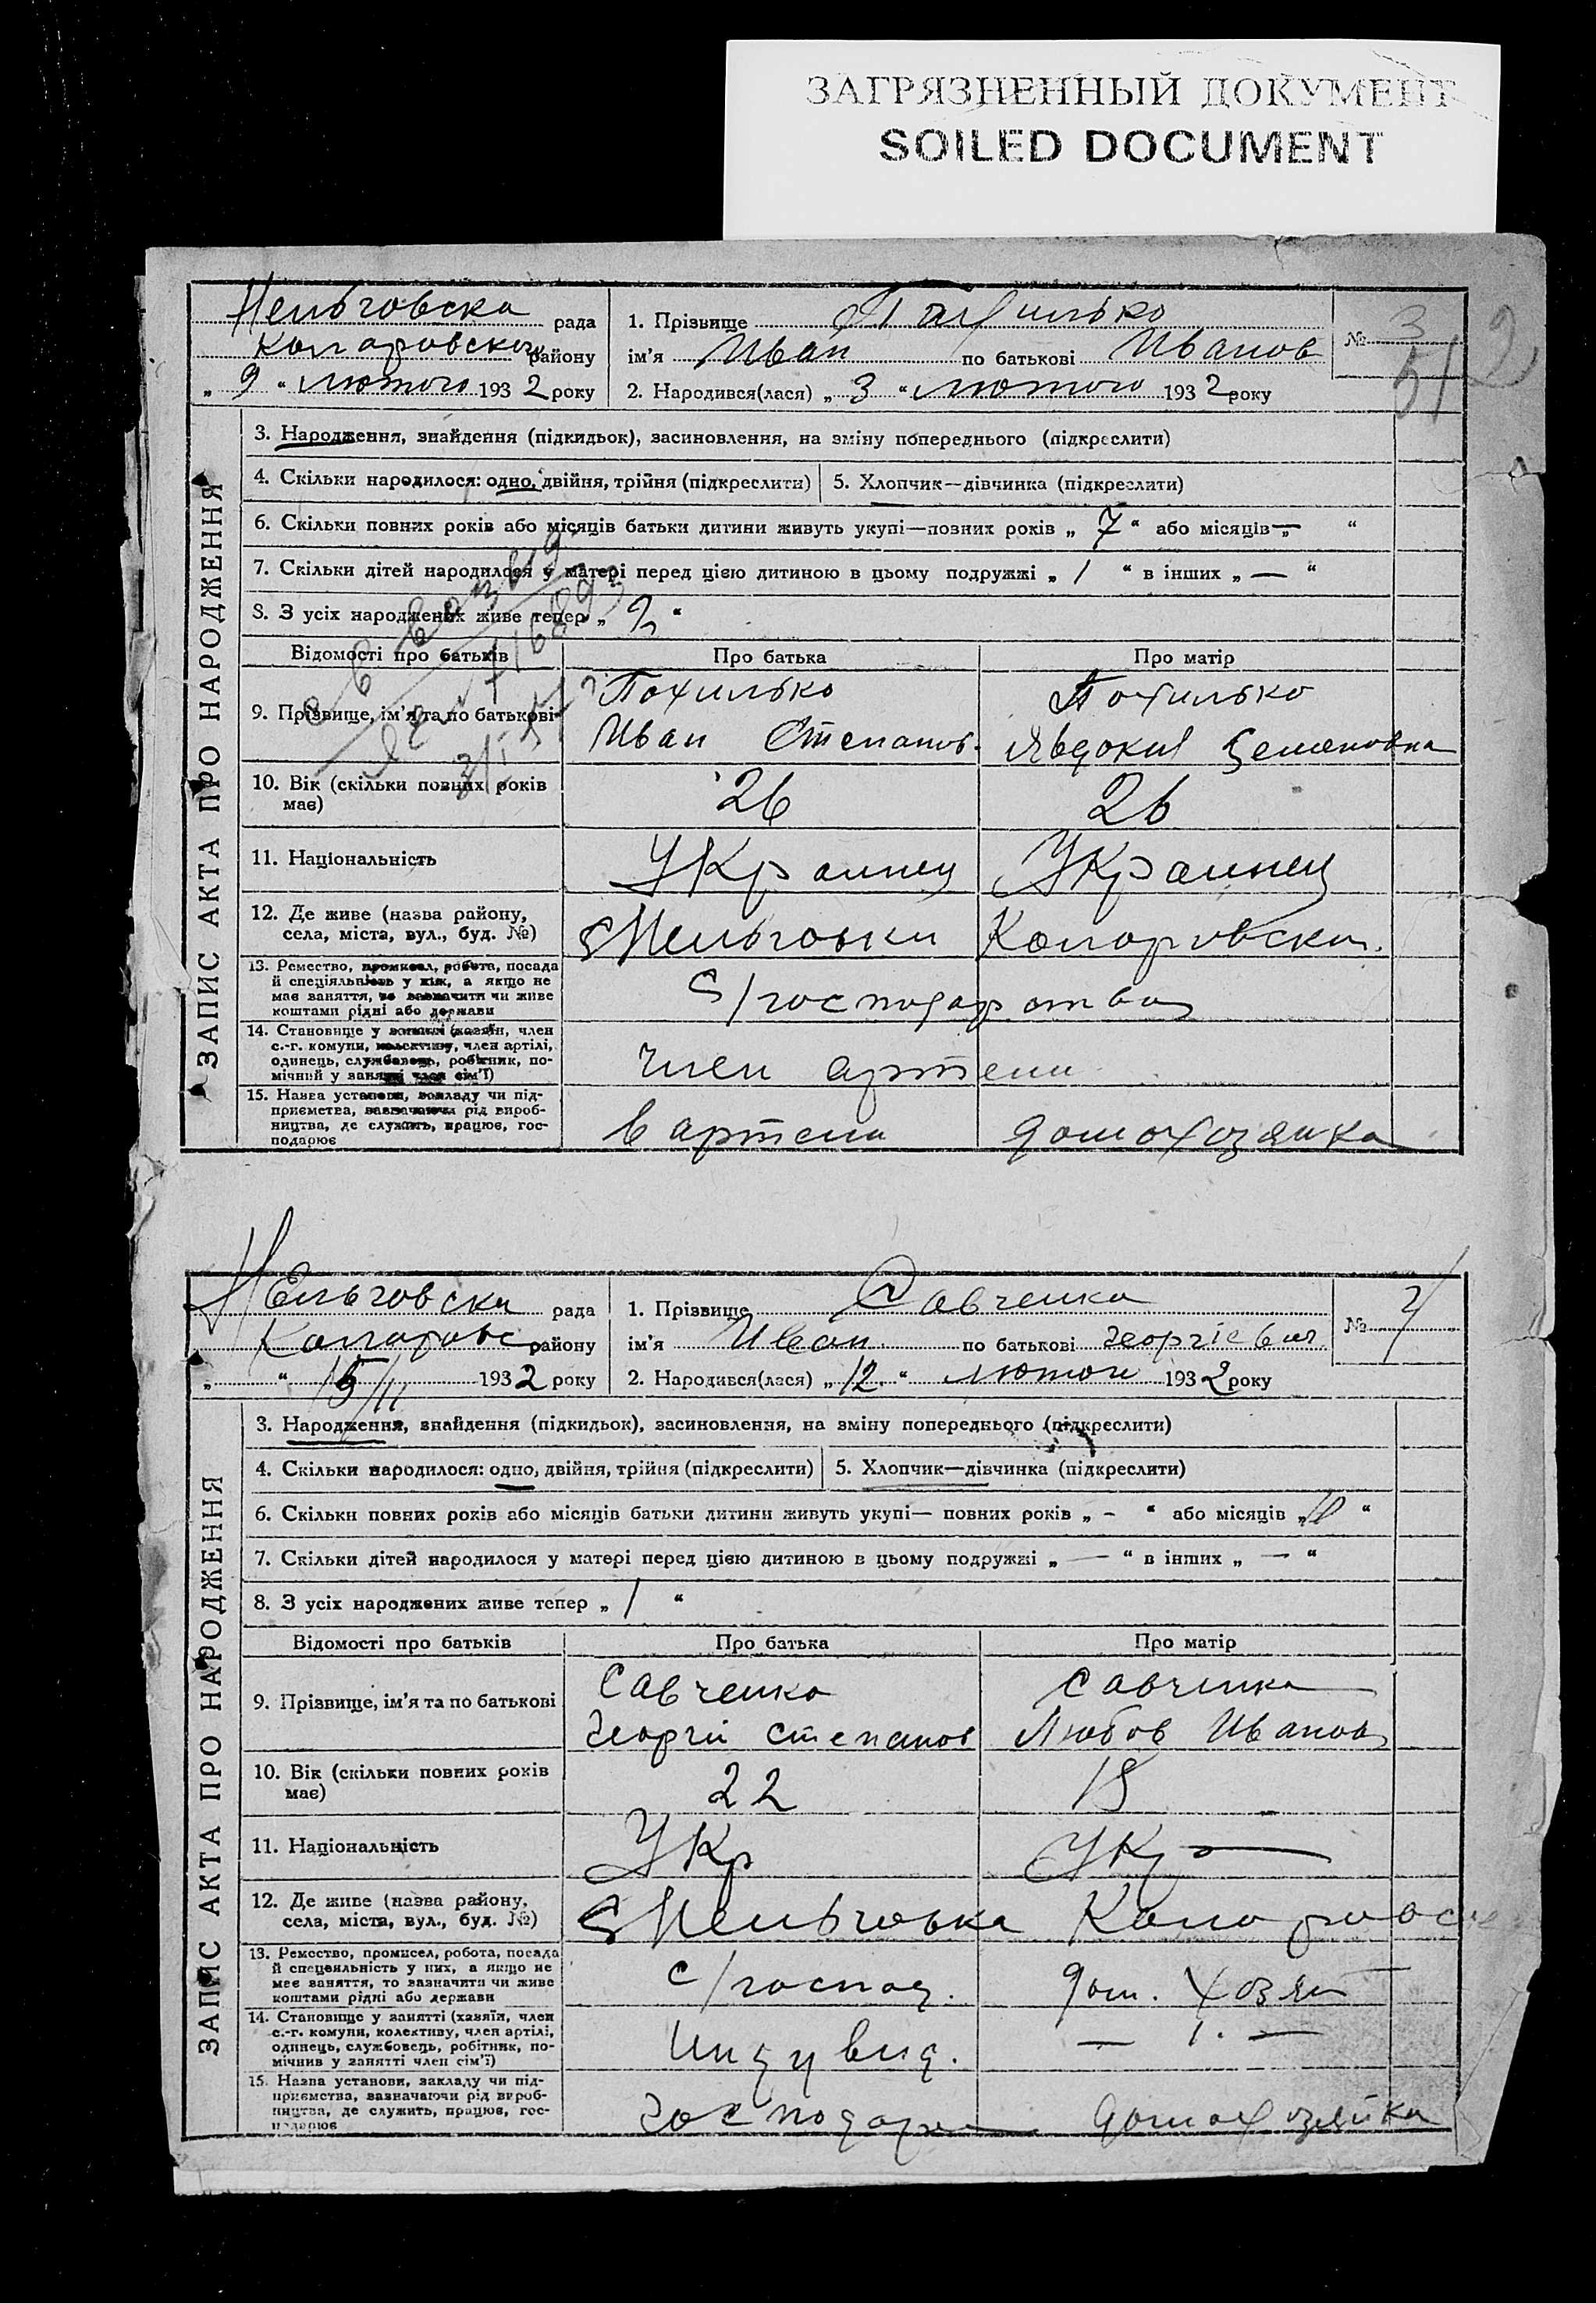 ЗАГРЯЗНЕННЫЙ ДОКУМЕНТ
SOILED DOCUMENT
Нельговска рада
1. Прізвище Похилько
№ 3
51
2
района
ім'я Иван по батькові Иванов
„ 9 “ лютого 1932 року
2. Народився(лася) „ 3 “ лютого 1932 року
ЗАПИС АКТА ПРО НАРОДЖЕННЯ
3. Народження, знайдення (підкидьок), засиновлення, на зміну попереднього (підкреслити)
4. Скільки народилося: одно, двійня, трійня (підкреслити)
5. Хлопчик—дівчинка (підкреслити)
6. Скільки повних років або місяців батьки дитини живуть укупі—повних років „ 7 “ або місяців „ — “
7. Скільки дітей народилося у матері перед цією дитиною в цьому подружжі „ 1 “ в інших „ — “
8. З усіх народжених живе тепер „ 2 “
Відомості про батьків
Про батька
Про матір
9. Прізвище, ім'я та по батькові
Похилько
Иван Степанов.
Похилько
Явдокия Семеновна
10. Вік (скільки повних років має)
26
26
11. Національність
Украинец
Украинец
12. Де живе (назва району, села, міста, вул., буд. №)
С Нельговки
13. Ремество, промисел, робота, посада
й спеціяльність у них, а якщо не
має заняття, то зазначити чи живе
коштами рідні або держави
С/господарства
14. Становище у занятті (хазяїн, член
с.-г. комуни, колективу, член артілі,
одинець, службовець, робітник, по-
мічний у занятті член сім'ї)
член артели
15. Назва установи, закладу чи під-
приємства, зазначаючи рід вироб-
ництва, де служить, працює, гос-
подарює
в артели
домохозяика
Нельговска рада
1. Прізвище Савченко
№
району
ім'я Иван по батькові Георгієвич
„ “ 15/II 1932 року
2. Народився(лася) „ 12 “ 1932 року
ЗАПИС АКТА ПРО НАРОДЖЕННЯ
3. Народження, знайдення (підкидьок), засиновлення, на зміну попереднього (підкреслити)
4. Скільки народилося: одно, двійня, трійня (підкреслити)
5. Хлопчик—дівчинка (підкреслити)
6. Скільки повних років або місяців батьки дитини живуть укупі— повних років „ - “ або місяців „ 10 “
7. Скільки дітей народилося у матері перед цією дитиною в цьому подружжі „ — “ в інших „ — “
8. З усіх народжених живе тепер „ 1 “
Відомості про батьків
Про батька
Про матір
9. Прізвище, ім'я та по батькові
Савченко
Георгій Степанов
Савченко
Любов Иванов
10. Вік (скільки повних років має)
22
18
11. Національність
Укр
Укр
12. Де живе (назва району, села, міста, вул., буд. №)
С Нельговка
13. Ремество, промисел, робота, посада
й спеціяльність у них, а якщо не
має заняття, то зазначити чи живе
коштами рідні або держави
с/господ.
дом. хозяй
14. Становище у занятті (хазяїн, член
с.-г. комуни, колективу, член артілі,
одинець, службовець, робітник, по-
мічник у занятті член сім'ї)
индувид.
15. Назва установи, закладу чи під-
приємства, зазначаючи рід вироб-
ництва, де служить, працює, гос-
подарює
домохозяйка